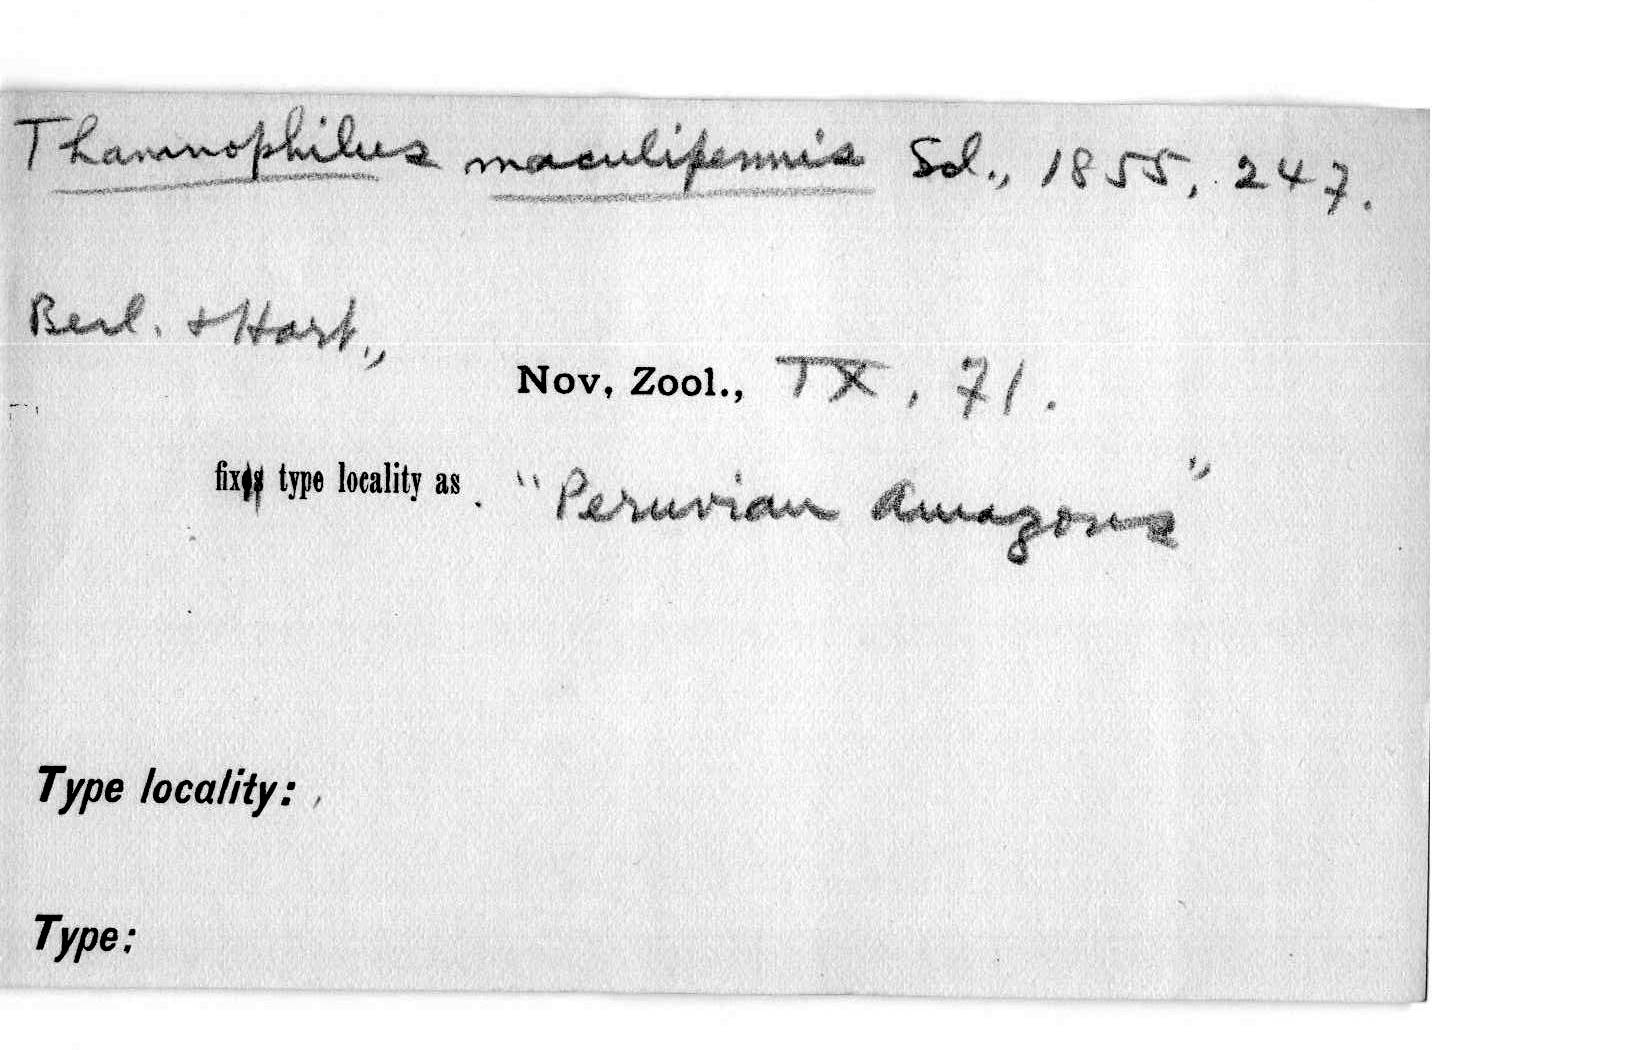 Thamnophilus maculipennis Scl., 1855, 247.
Berl. & Hart.,
Nov, Zool., IX, 71.
fix type locality as . "Peruvian Amazons"
Type locality:
Type: